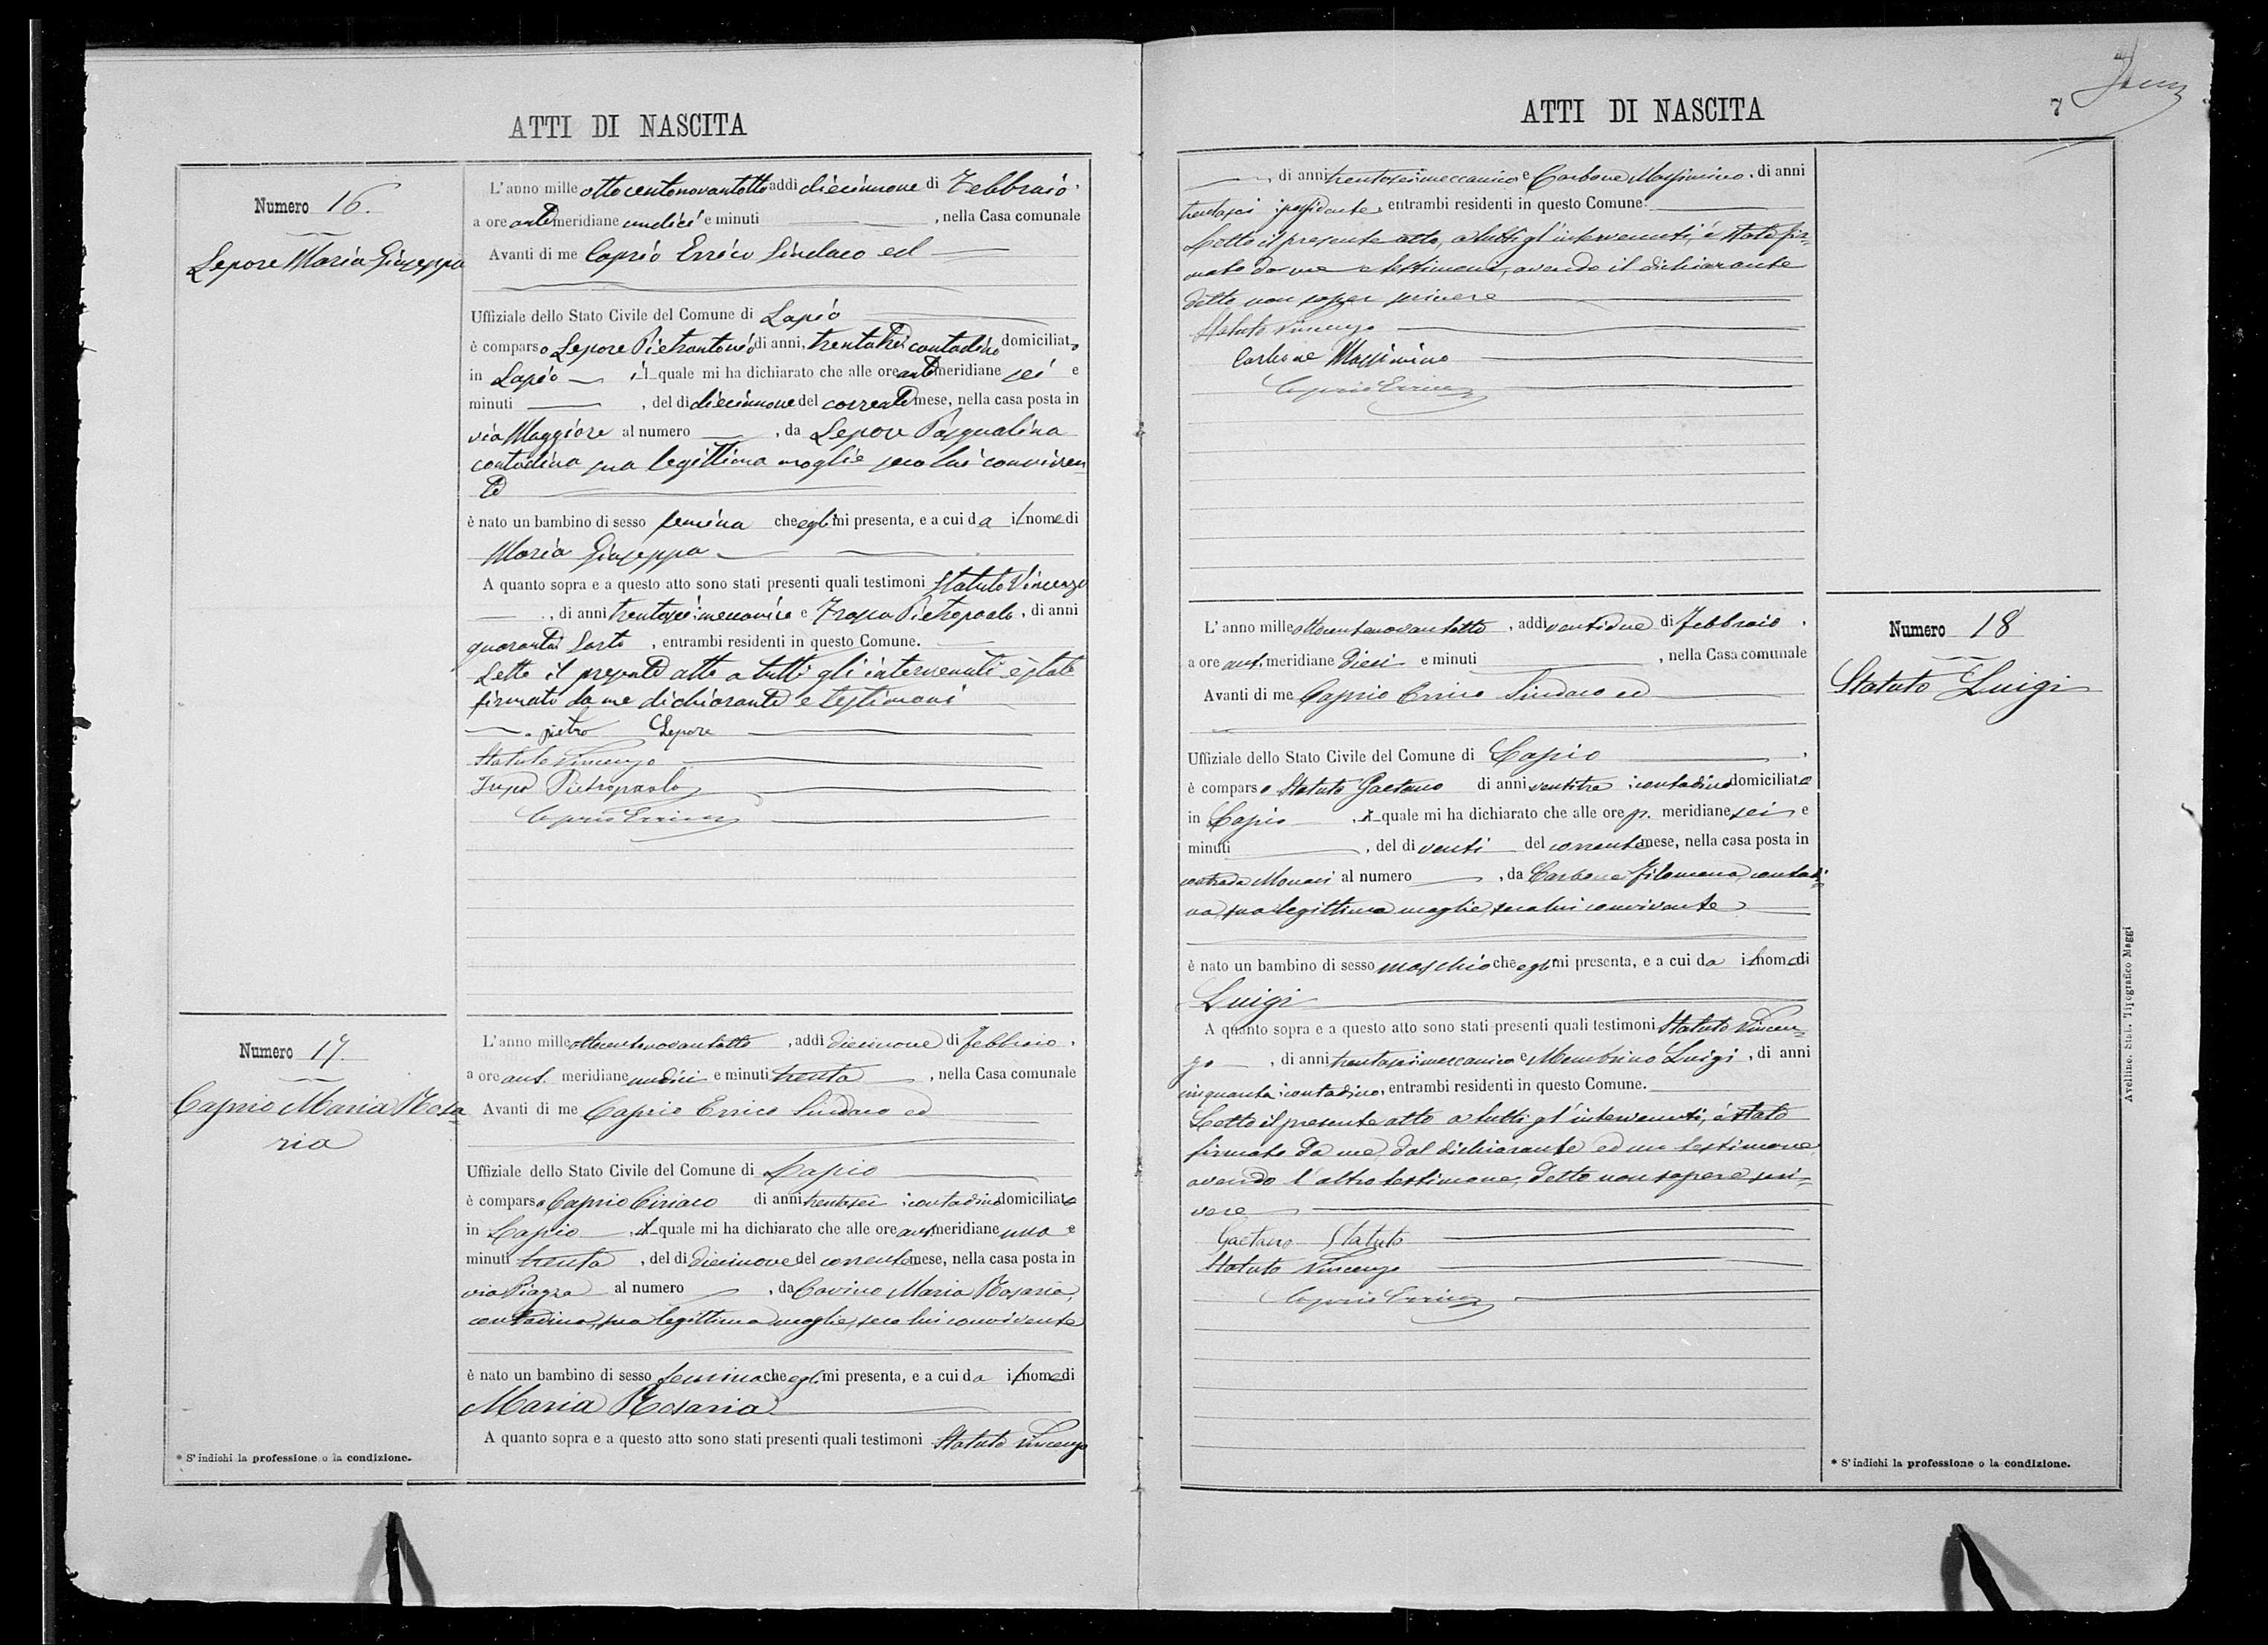 ATTI DI NASCITA
Numero 16.
Lepore Maria Giuseppa
L'anno mille ottocentonovantotto addì diecinnove di Febbraio,
a ore antemeridiane undici e minuti , nella Casa comunale
Avanti di me Caprio Errico Sindaco ed
Uffiziale dello Stato Civile del Comune di Lapio
è comparso Lepore Pietrantonio di anni, trentatre contadino domiciliato
in Lapio il quale mi ha dichiarato che alle ore antemeridiane sei e
minuti , del dì diecinnove del corrente mese, nella casa posta in
via Maggiore al numero , da Lepore Pasqualina
contadina sua legittima moglie seco lui conviven
te
è nato un bambino di sesso femina che egli mi presenta, e a cui da il nome di
Maria Giuseppa
A quanto sopra e a questo atto sono stati presenti quali testimoni Statuto Vincenzo
, di anni trentasei meccanico e Pietropaolo, di anni
quaranta Sarto , entrambi residenti in questo Comune.
Letto il presente atto a tutti gli intervenuti è stato
firmato da me dichiarante e testimoni
pietro Lepore
Statuto Vincenzo
Pietropaolo
Caprio Errico
Numero 17.
Caprio Maria Rosa
ria
L'anno mille ottocentonovantotto , addì diecinove di Febbraio,
a ore ant. meridiane undici e minuti trenta , nella Casa comunale
Avanti di me Caprio Errico Sindaco ed
Uffiziale dello Stato Civile del Comune di Lapio
è comparso Caprio Ciriaco di anni trentasei contadino domiciliato
in Lapio , il quale mi ha dichiarato che alle ore ant. meridiane una e
minuti trenta , del dì diecinove del corrente mese, nella casa posta in
via Piazza al numero , da Maria Rosaria,
contadina, sua legittima moglie, seco lui convivente
è nato un bambino di sesso femina che egli mi presenta, e a cui da il nome di
Maria Rosaria
A quanto sopra e a questo atto sono stati presenti quali testimoni Statuto Vincenzo
* S'indichi la professione o la condizione.
ATTI DI NASCITA
7
, di anni trentasei meccanico e Carbone Massimino, di anni
trentasei possidente, entrambi residenti in questo Comune.
Letto il presente atto, a tutti gl'intervenuti, è stato fir=
mato da me e testimoni, avendo il dichiarante
detto non saper scrivere
Statuto Vincenzo
Carbone Massimino
Caprio Errico
Numero 18
Statuto Luigi
L'anno mille ottocentonovantotto , addì ventidue di Febbraio ,
a ore ant. meridiane dieci e minuti , nella Casa comunale
Avanti di me Caprio Errico Sindaco ed
Uffiziale dello Stato Civile del Comune di Lapio ,
è comparso Statuto Gaetano di anni ventitre contadino domiciliato
in Lapio , il quale mi ha dichiarato che alle ore p. meridiane sei e
minuti , del dì venti del corrente mese, nella casa posta in
contrada Monaci al numero , da Carbone Filomena, contadi=
na, sua legittima moglie, seco lui convivente
è nato un bambino di sesso maschio che egli mi presenta, e a cui da il nome di
Luigi
A quanto sopra e a questo atto sono stati presenti quali testimoni Statuto Vincen=
zo , di anni trentasei meccanico e Membrino Luigi , di anni
cinquanta contadino, entrambi residenti in questo Comune.
Letto il presente atto a tutti gl'intervenuti, è stato
firmato da me, dal dichiarante ed un testimone,
avendo l'altro testimone detto non sapere scri=
vere
Gaetano Statuto
Statuto Vincenzo
Caprio Errico
* S'indichi la professione o la condizione.
Avellino. Stab. Tipografico Maggi